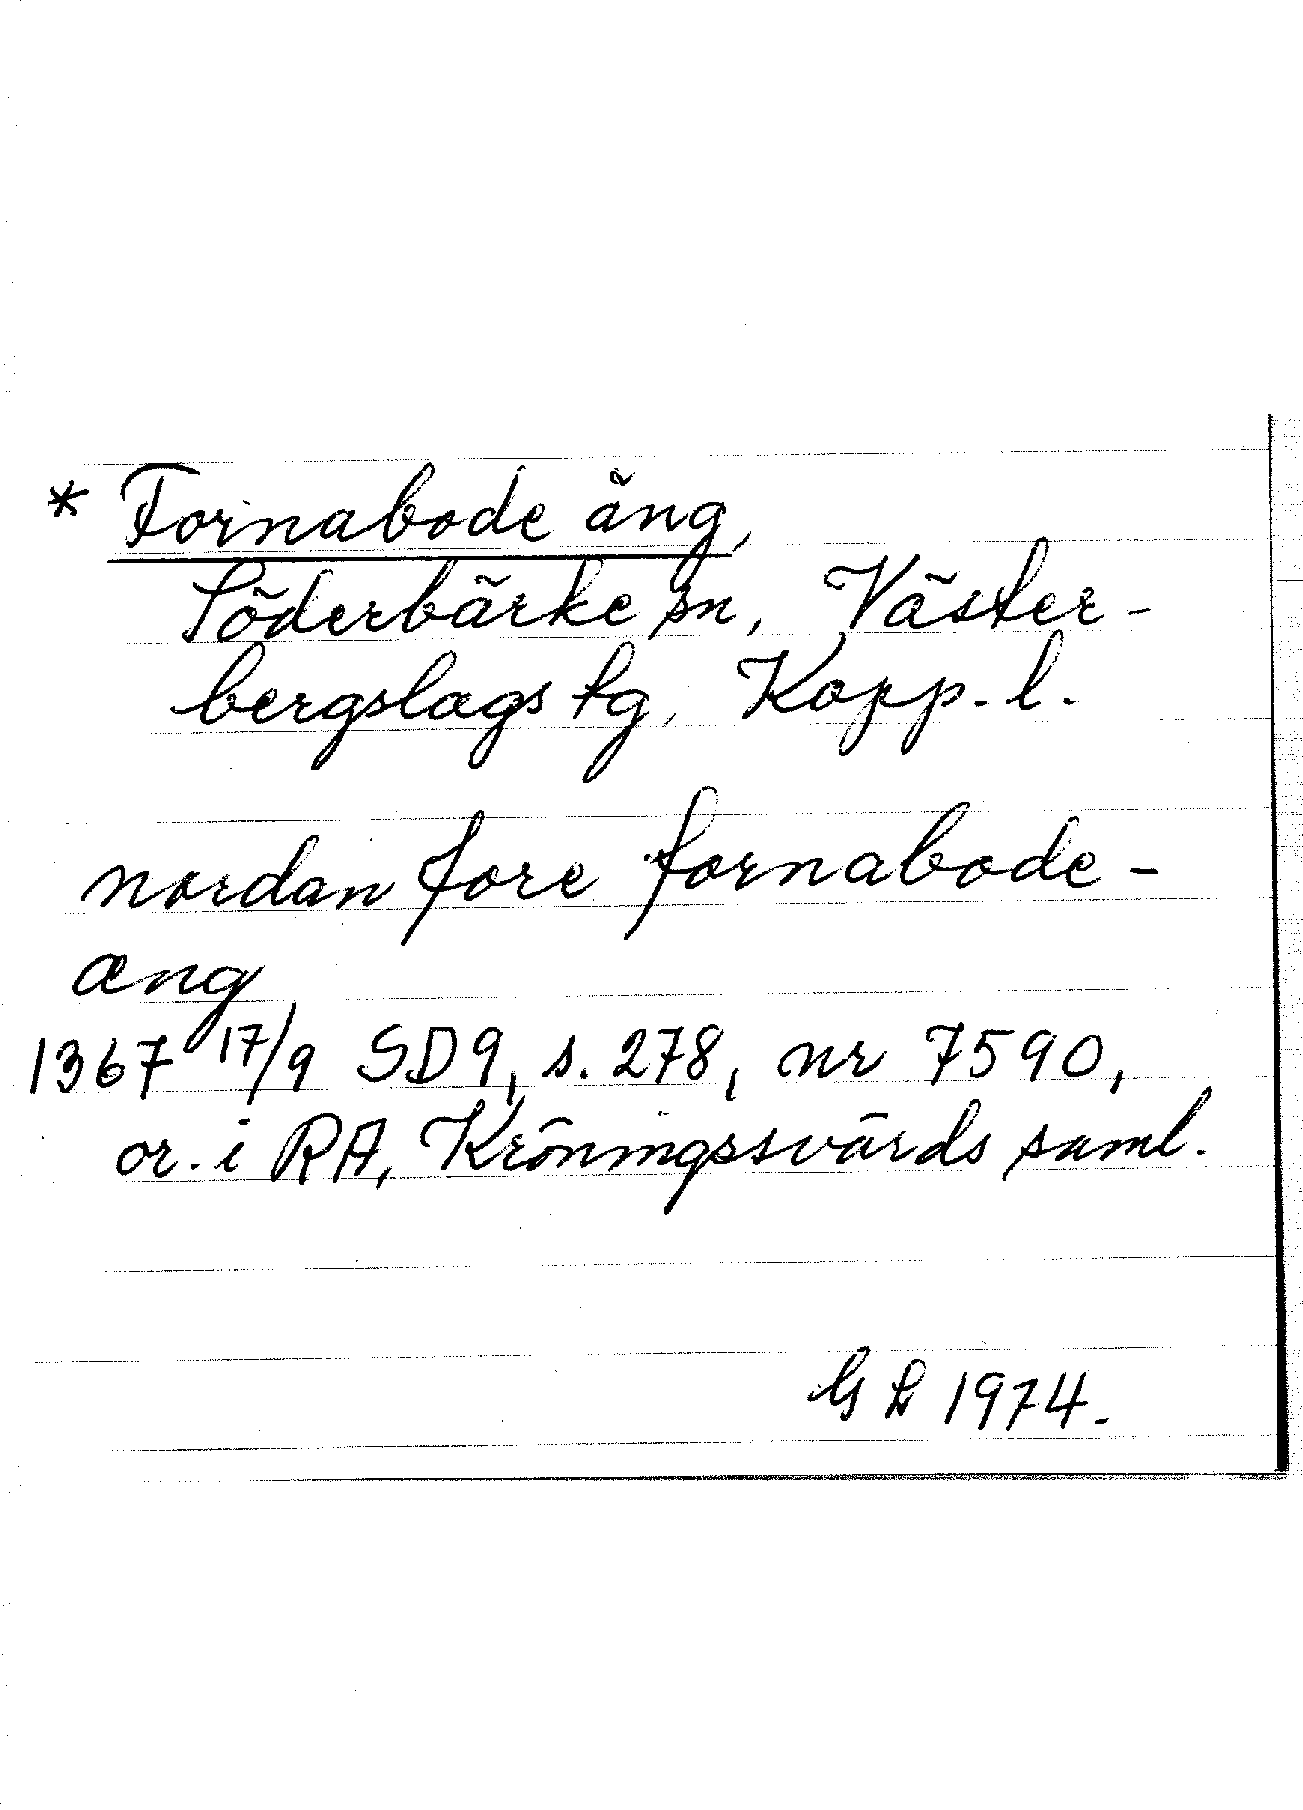 * Fornabode äng,
Söderbärke sn, Väster-
bergslags tg, Kopp. l.
nordan fore fornabode-
æng
1367 17/9 SD9, s. 278, nr 7590,
or. i RA, Kröningssvärds saml.
GL 1974.